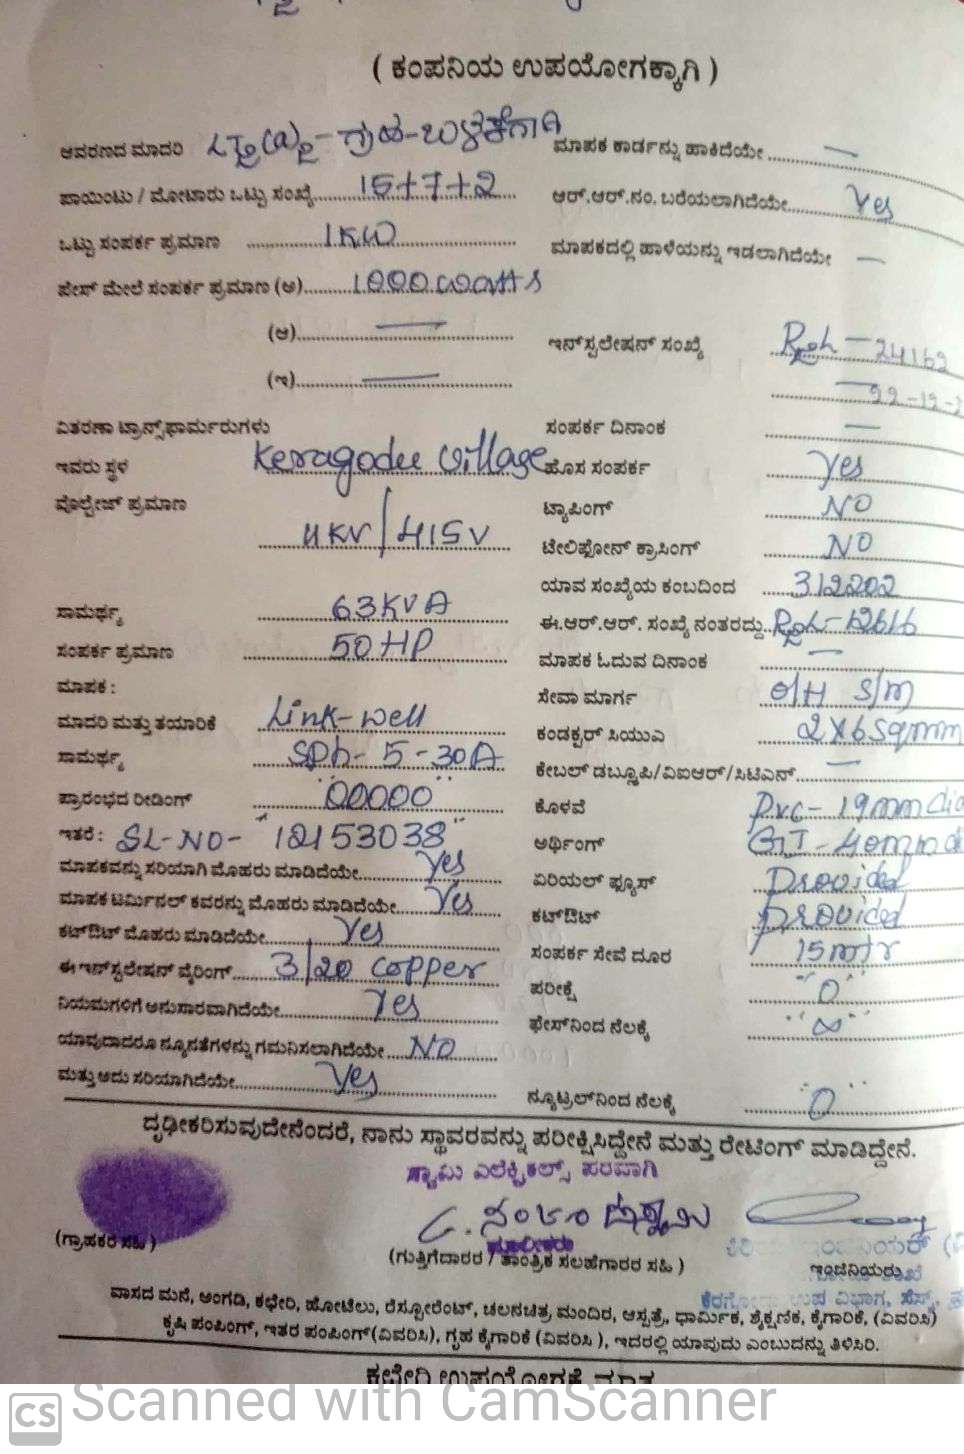 ( ಕಂಪನಿಯ ಉಪಯೋಗಕ್ಕಾಗಿ )
ಆವರಣದ ಮಾದರಿ ಗೃಹ-ಬಳಕೆಗಾಗಿ ಮಾಪಕ ಕಾರ್ಡನ್ನು ಹಾಕಿದೆಯೇ —
ಪಾಯಿಂಟು / ಮೋಟಾರು ಒಟ್ಟು ಸಂಖ್ಯೆ 15+7+2 ಆರ್.ಆರ್.ನಂ. ಬರೆಯಲಾಗಿದೆಯೇ Yes
ಒಟ್ಟು ಸಂಪರ್ಕ ಪ್ರಮಾಣ 1KW ಮಾಪಕದಲ್ಲಿ ಹಾಳೆಯನ್ನು ಇಡಲಾಗಿದೆಯೇ —
ಪೇಸ್ ಮೇಲೆ ಸಂಪರ್ಕ ಪ್ರಮಾಣ (ಅ) 1000 watts
(ಆ) — ಇನ್‌ಸ್ಟಲೇಷನ್ ಸಂಖ್ಯೆ 24162
(ಇ) —
ವಿತರಣಾ ಟ್ರಾನ್ಸ್‌ಫಾರ್ಮರುಗಳು ಸಂಪರ್ಕ ದಿನಾಂಕ —
ಇವರು ಸ್ಥಳ Keragodu Village ಹೊಸ ಸಂಪರ್ಕ Yes
ವೊಲ್ಟೇಜ್ ಪ್ರಮಾಣ 11KV/415V ಟ್ಯಾಪಿಂಗ್ NO
ಟೆಲಿಫೋನ್ ಕ್ರಾಸಿಂಗ್ NO
ಯಾವ ಸಂಖ್ಯೆಯ ಕಂಬದಿಂದ 312202
ಸಾಮರ್ಥ್ಯ 63KVA ಈ.ಆರ್.ಆರ್. ಸಂಖ್ಯೆ ನಂತರದ್ದು
ಸಂಪರ್ಕ ಪ್ರಮಾಣ 50HP ಮಾಪಕ ಓದುವ ದಿನಾಂಕ —
ಮಾಪಕ : ಸೇವಾ ಮಾರ್ಗ O/H S/M
ಮಾದರಿ ಮತ್ತು ತಯಾರಿಕೆ Link-well ಕಂಡಕ್ಟರ್ ಸಿಯುಎ 2X6Sqmm
ಸಾಮರ್ಥ್ಯ SPh-5-30A ಕೇಬಲ್ ಡಬ್ಲ್ಯೂಪಿ/ವಿಐಆರ್/ಸಿಟಿಎಸ್ —
ಪ್ರಾರಂಭದ ರೀಡಿಂಗ್ "00000" ಕೊಳವೆ Pvc-19mm dia
ಇತರೆ : SL-NO- "12153038" ಅರ್ಥಿಂಗ್ GI-40mm di
ಮಾಪಕವನ್ನು ಸರಿಯಾಗಿ ಮೊಹರು ಮಾಡಿದೆಯೇ Yes ಏರಿಯಲ್ ಫ್ಯೂಸ್ Provided
ಮಾಪಕ ಟರ್ಮಿನಲ್ ಕವರನ್ನು ಮೊಹರು ಮಾಡಿದೆಯೇ Yes ಕಟ್‌ಔಟ್ Provided
ಕಟ್‌ಔಟ್ ಮೊಹರು ಮಾಡಿದೆಯೇ Yes ಸಂಪರ್ಕ ಸೇವೆ ದೂರ 15mtr
ಈ ಇನ್‌ಸ್ಟಲೇಷನ್ ವೈರಿಂಗ್ 3/20 copper ಪರೀಕ್ಷೆ "0"
ನಿಯಮಗಳಿಗೆ ಅನುಸಾರವಾಗಿದೆಯೇ Yes ಫೇಸ್‌ನಿಂದ ನೆಲಕ್ಕೆ "∞"
ಯಾವುದಾದರೂ ನ್ಯೂನತೆಗಳನ್ನು ಗಮನಿಸಲಾಗಿದೆಯೇ NO
ಮತ್ತು ಅದು ಸರಿಯಾಗಿದೆಯೇ Yes ನ್ಯೂಟ್ರಲ್‌ನಿಂದ ನೆಲಕ್ಕೆ "0"
ದೃಢೀಕರಿಸುವುದೇನೆಂದರೆ, ನಾನು ಸ್ಥಾವರವನ್ನು ಪರೀಕ್ಷಿಸಿದ್ದೇನೆ ಮತ್ತು ರೇಟಿಂಗ್ ಮಾಡಿದ್ದೇನೆ.
ಸ್ವಾಮಿ ಎಲೆಕ್ಟ್ರಿಕಲ್ಸ್ ಪರವಾಗಿ
ಮಾಲೀಕರು
(ಗ್ರಾಹಕರ ಸಹಿ ) (ಗುತ್ತಿಗೆದಾರರ / ತಾಂತ್ರಿಕ ಸಲಹೆಗಾರರ ಸಹಿ ) ಇಂಜಿನಿಯರು
ವಾಸದ ಮನೆ, ಅಂಗಡಿ, ಕಛೇರಿ, ಹೋಟೆಲು, ರೆಸ್ಟೋರೆಂಟ್, ಚಲನಚಿತ್ರ ಮಂದಿರ, ಆಸ್ಪತ್ರೆ, ಧಾರ್ಮಿಕ, ಶೈಕ್ಷಣಿಕ, ಕೈಗಾರಿಕೆ, (ವಿವರಿಸಿ)
ಕೃಷಿ ಪಂಪಿಂಗ್, ಇತರ ಪಂಪಿಂಗ್(ವಿವರಿಸಿ), ಗೃಹ ಕೈಗಾರಿಕೆ (ವಿವರಿಸಿ ), ಇದರಲ್ಲಿ ಯಾವುದು ಎಂಬುದನ್ನು ತಿಳಿಸಿರಿ.
ಕಛೇರಿ ಉಪಯೋಗಕ್ಕೆ ಮಾತ್ರ
CS Scanned with CamScanner